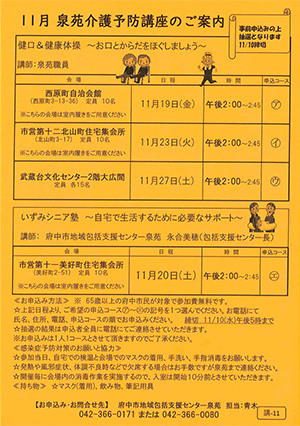 11月 泉苑介護予防講座のご案内
事前申込みの上
抽選となります
11/10締切
健口&健康体操 ～お口とからだをほぐしましょう～
講師:泉苑職員
会 場 日 程 時 間 申込コース
西原町自治会館
(西原町3-13-36) 定員 10名
※こちらの会場は室内履きをご用意ください
11月19日(金) 午後2:00～2:45 ㋐
市営第十二北山町住宅集会所
(北山町3-17) 定員 10名
※こちらの会場は室内履きをご用意ください
11月23日(火) 午後2:00～2:45 ㋑
武蔵台文化センター2階大広間
定員 各15名
11月27日(土) 午後2:00～2:45 ㋒
いずみシニア塾 ～自宅で生活するために必要なサポート～
講師: 府中市地域包括支援センター泉苑 永合美穂(包括支援センター長)
会 場 日 程 時 間 申込コース
市営第十一美好町住宅集会所
(美好町2-51) 定員 10名
※こちらの会場は室内履きをご用意ください
11月20日(土) 午後2:00～2:45 ㋓
≪お申込み方法≫ ※ 65歳以上の府中市民が対象で参加費無料です。
☆上記日程より、ご希望の申込コースの㋐～㋓の記号を1つ選んでください。お電話にて
氏名、住所、電話、申込コースの順でお申込みください。 締切 11/10(水)午後5時まで
☆抽選の結果は申込者全員に電話にてご連絡させていただきます。
※お申込みは1人1コースとさせて頂きますのでご了承ください。
≪感染症予防対策のお願いと協力≫
☆参加当日、自宅での検温と会場でのマスクの着用、手洗い、手指消毒をお願いします。
☆発熱や風邪症状、体調不良時などで欠席する場合はお手数ですが泉苑まで連絡ください。
☆開催前に会場内の消毒作業を実施するので、入室は開始10分前とさせていただきます。
≪持ち物≫ ☆マスク(着用)、飲み物、筆記用具
【お申込み・お問合せ先】 府中市地域包括支援センター泉苑 担当:青木
042-366-0171または 042-366-0080
講-11